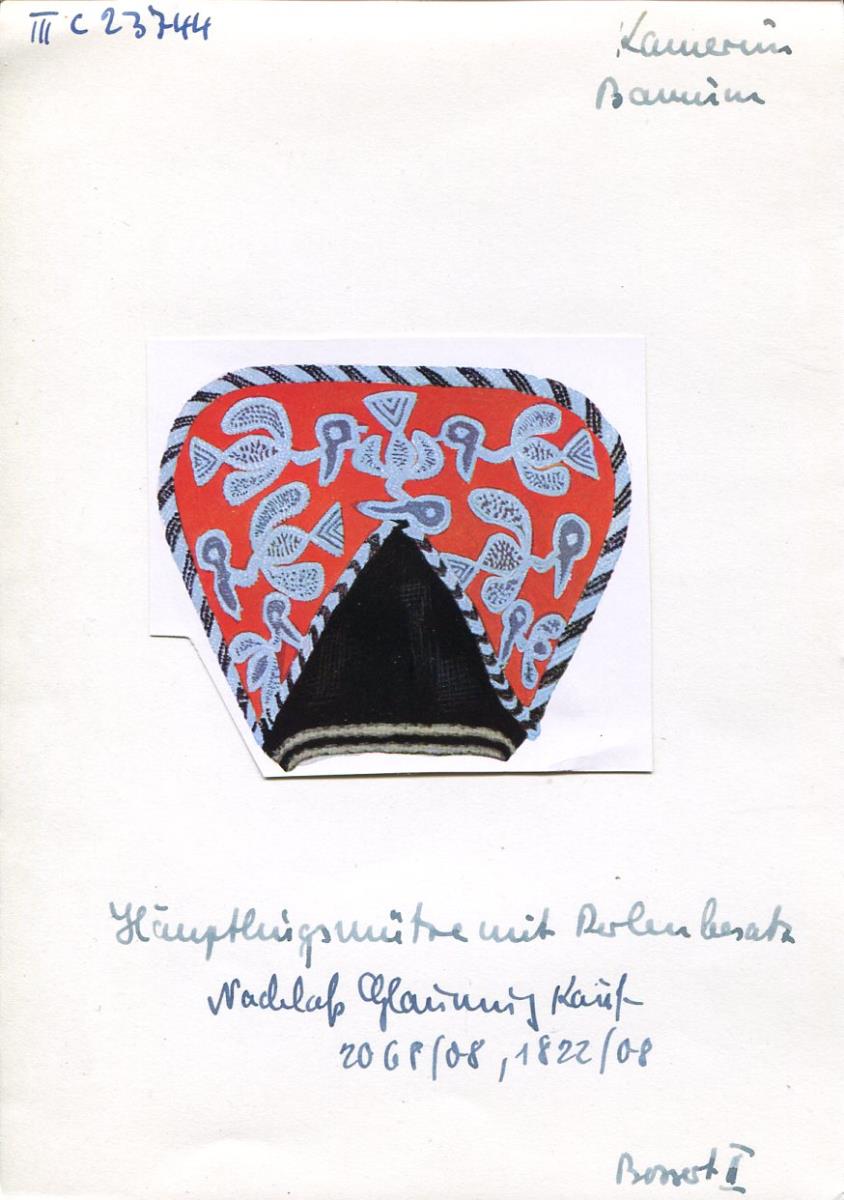 III C 23744
Kamerun
Bamum
Häuptlingsmütze mit Perlenbesatz
Nachlaß Glauning Kauf
2068/08, 1822/08
Bossert II